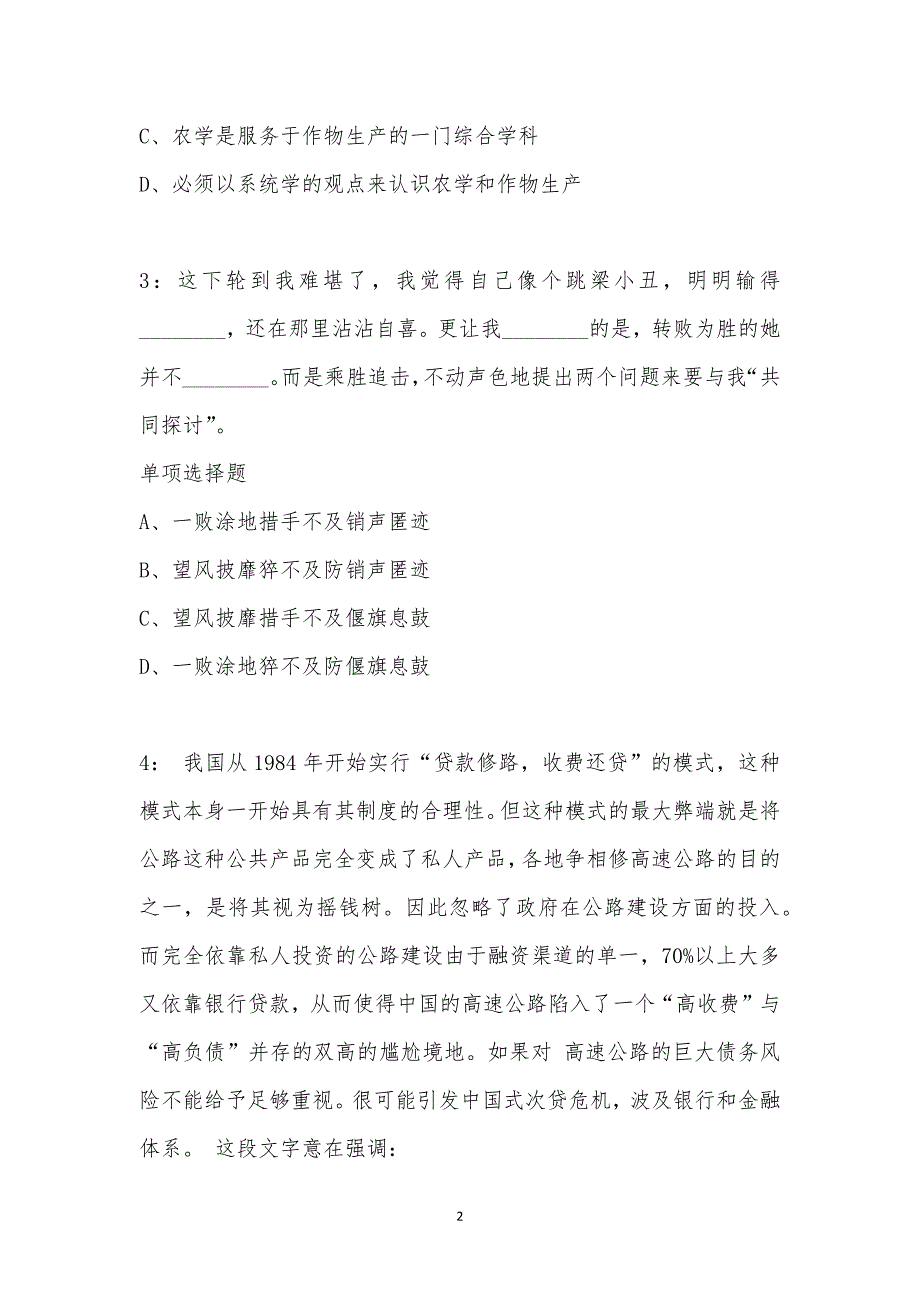 C、农学是服务于作物生产的一门综合学科
D、必须以系统学的观点来认识农学和作物生产
3：这下轮到我难堪了，我觉得自己像个跳梁小丑，明明输得
________，还在那里沾沾自喜。更让我________的是，转败为胜的她
并不________。而是乘胜追击，不动声色地提出两个问题来要与我“共
同探讨”。
单项选择题
A、一败涂地措手不及销声匿迹
B、望风披靡猝不及防销声匿迹
C、望风披靡措手不及偃旗息鼓
D、一败涂地猝不及防偃旗息鼓
4： 我国从1984年开始实行“贷款修路，收费还贷”的模式，这种
模式本身一开始具有其制度的合理性。但这种模式的最大弊端就是将
公路这种公共产品完全变成了私人产品，各地争相修高速公路的目的
之一，是将其视为摇钱树。因此忽略了政府在公路建设方面的投入。
而完全依靠私人投资的公路建设由于融资渠道的单一，70%以上大多
又依靠银行贷款，从而使得中国的高速公路陷入了一个“高收费”与
“高负债”并存的双高的尴尬境地。如果对 高速公路的巨大债务风
险不能给予足够重视。很可能引发中国式次贷危机，波及银行和金融
体系。 这段文字意在强调：
2